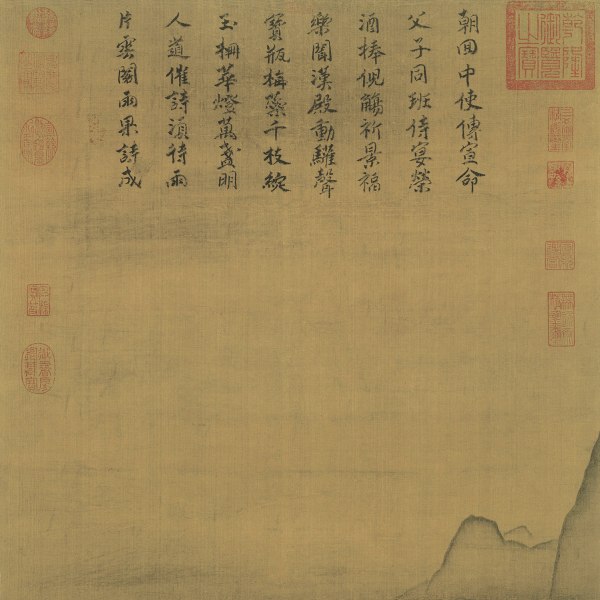 乾隆御覽之寶
朝回中使傳宣命
父子同班侍宴榮
酒捧倪觴祈景福
樂聞漢殿動驩聲
寶瓶梅蘂千枝綻
玉柵華燈萬盞明
人道催詩須待雨
片雲閣雨果詩成